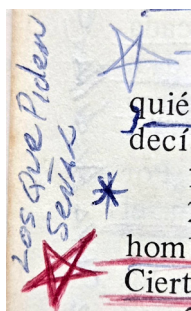 Los Que Piden
Señas
quié
decí
hom
Ciert